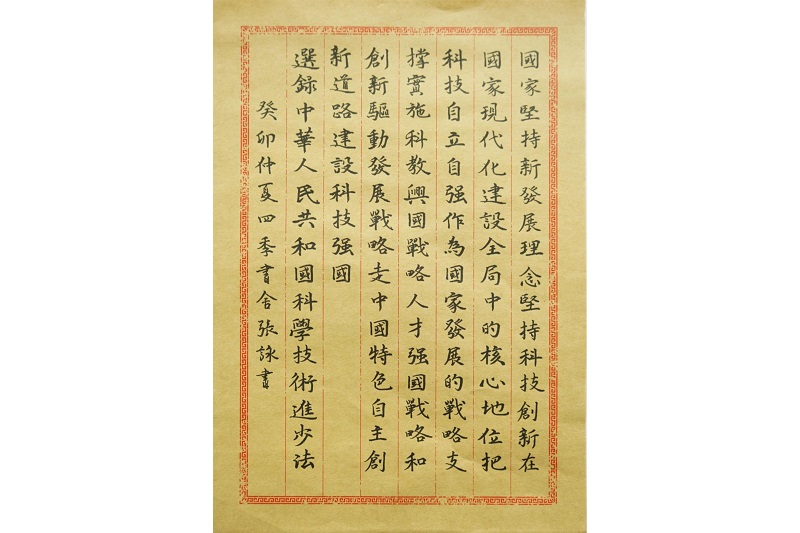 國家堅持新發展理念堅持科技創新在
國家現代化建設全局中的核心地位把
科技自立自强作為國家發展的戰略支
撐實施科教興國戰略人才强國戰略和
創新驅動發展戰略走中國特色自主創
新道路建設科技强國
選録中華人民共和國科學技術進步法
癸卯仲夏四季書舍張詠書